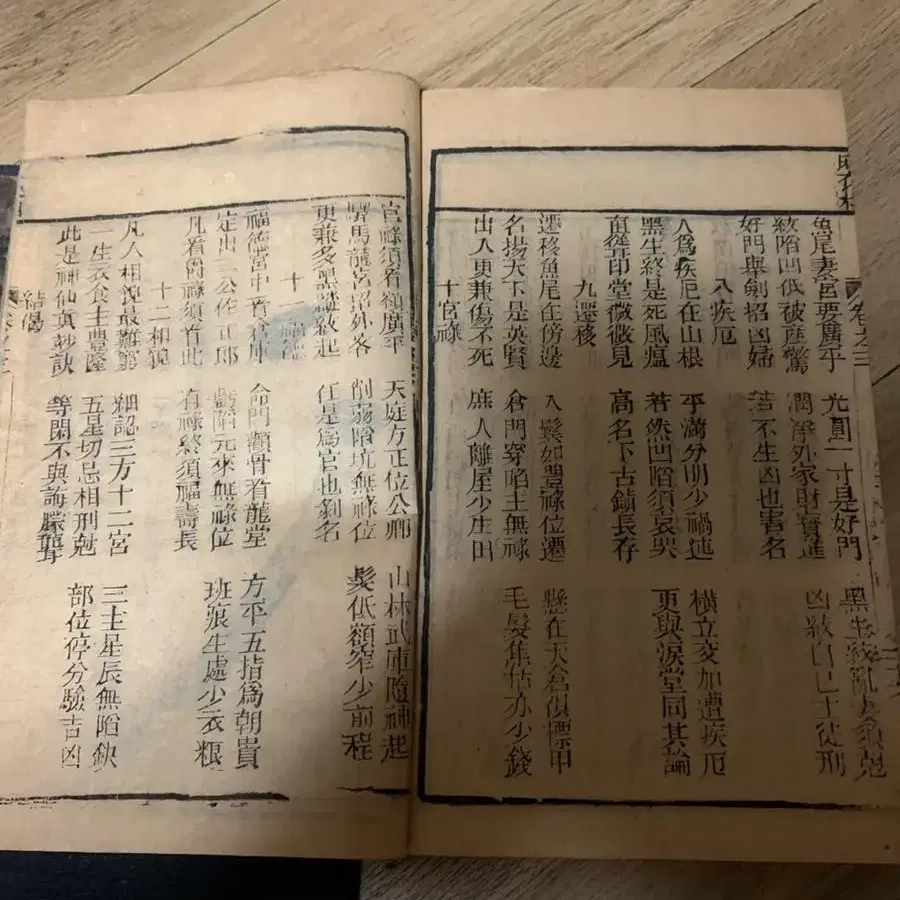 卷之三
魚尾妻宮要廣平 光圓一寸是好門 黑生紋亂妻須尅
紋陷凹低被產驚 潤淨外家財寶進 凶紋自己主徒刑
好門舉劍招凶婦 若不生凶也害名
八疾厄
八爲疾厄在山根 平滿分明少禍連 橫立交加遭疾厄
黑生終是死風瘟 若然凹陷須哀哭 更與淚堂同其論
直從印堂微微見 高名下古鎮長存
九遷移
遷移魚尾在傍邊 入鬢如豐祿位遷 懸在天倉俱標甲
名場天下是英賢 倉門穿陷主無祿 毛髮焦枯亦少錢
出入更兼傷不死 庶人離屋少庄田
十官祿
官祿須看額廣平 天庭方正位公卿 山林武庫隨神起
驛馬龍宮招外客 削弱陷坑無祿位 髮低額窄少前程
更兼多黑皺紋起 任是爲官也剝名
十一福德
福德宮中看倉庫 命門顴骨看龍堂 方平五指爲朝貴
定出三公佐正郎 陷元來無祿位 班痕生處少衣粮
凡看爵祿須看此 有祿終須福壽長
十二相貌
凡人相貌最難窮 細認三方十二宮 三主星辰無陷缺
一生衣食主豐隆 五星切忌相刑尅 部位停分驗吉凶
此是神仙真妙訣 等閑不與誨朦聾
結偈